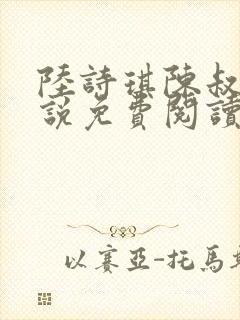 陸詩琪陳叔
說免費閱讀
以賽亞-托馬斯